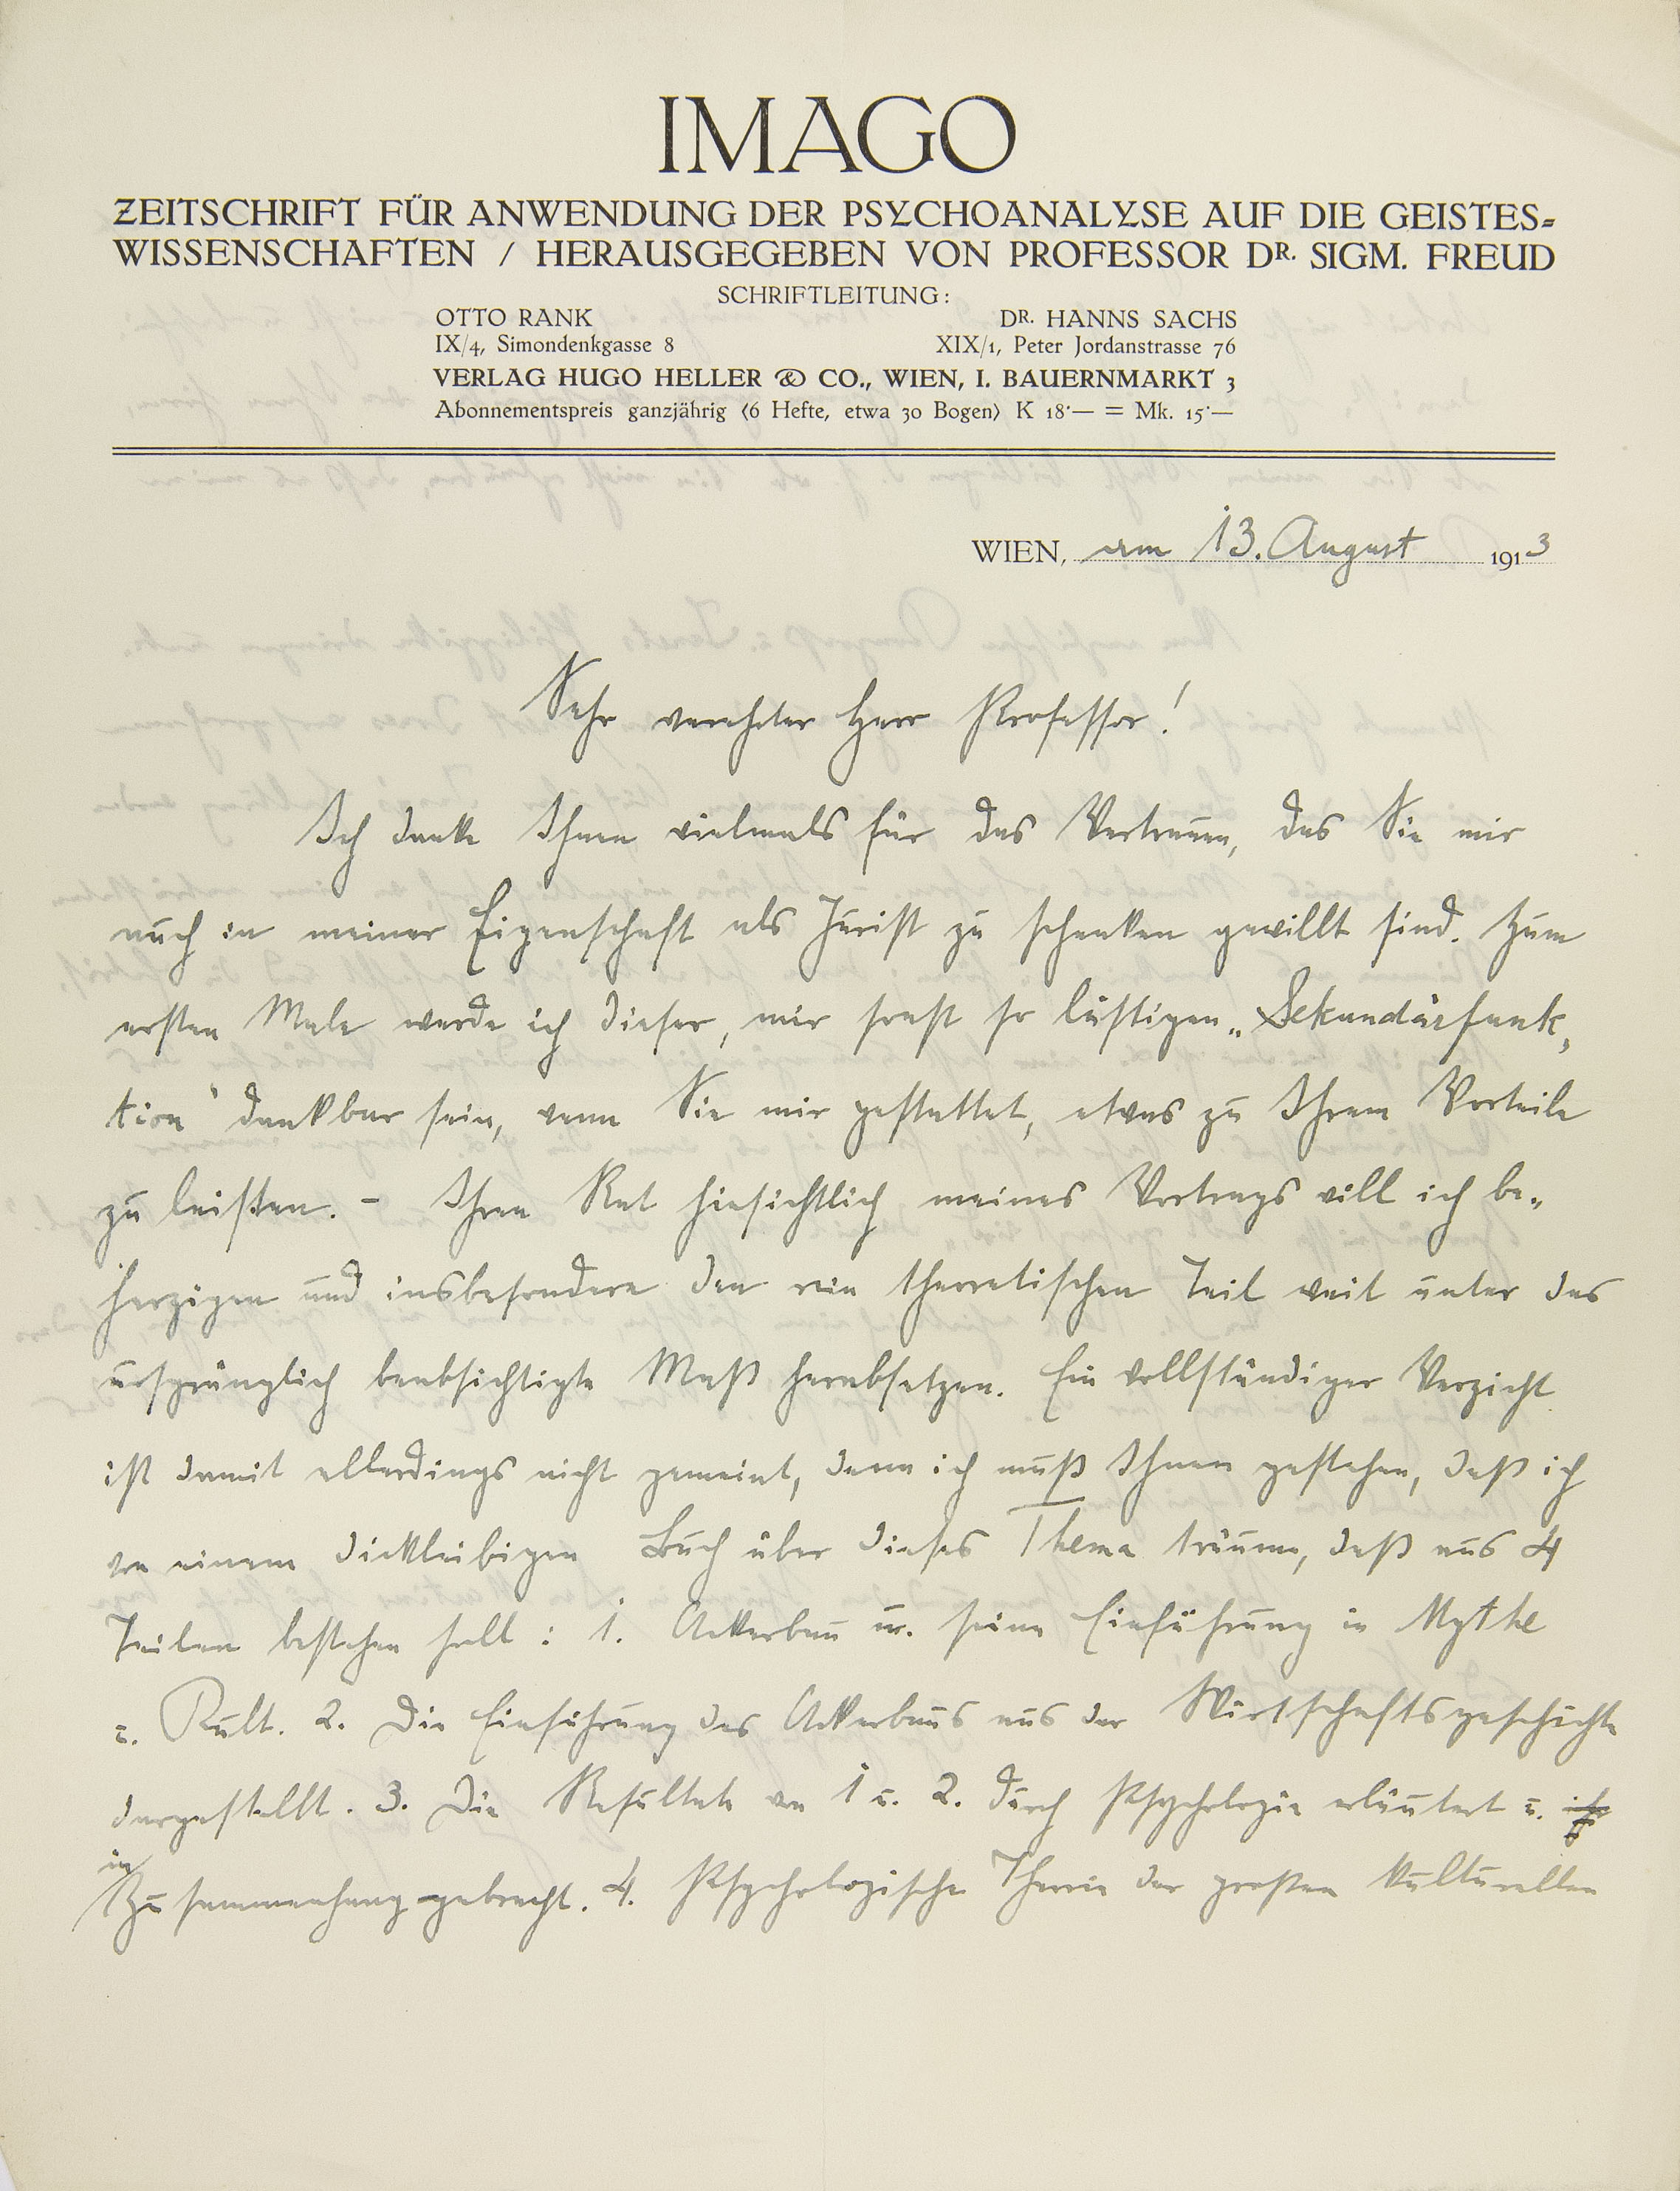 IMAGO
ZEITSCHRIFT FÜR ANWENDUNG DER PSYCHOANALYSE AUF DIE GEISTES=
WISSENSCHAFTEN / HERAUSGEGEBEN VON PROFESSOR DR. SIGM. FREUD
SCHRIFTLEITUNG:
OTTO RANK DR. HANNS SACHS
IX/4, Simondenkgasse 8 XIX/1, Peter Jordanstrasse 76
VERLAG HUGO HELLER & CO., WIEN, I. BAUERNMARKT 3
Abonnementspreis ganzjährig (6 Hefte, etwa 30 Bogen) K 18·— = Mk. 15·—
WIEN, am 13. August 1913
Sehr verehrter Herr Professor!
Ich danke Ihnen vielmals für das Vertrauen, das Sie mir
auch in meiner Eigenschaft als Jurist zu schenken gewillt sind. Zum
ersten Male werde ich dieser, mir sonst so lästigen „Sekundärfunk„
tion" dankbar sein, wenn Sie mir gestattet, etwas zu Ihrem Vorteile
zu leisten. – Ihren Rat hinsichtlich meines Vortrags will ich be„
herzigen und insbesondere den rein theoretischen Teil weit unter das
ursprünglich beabsichtigte Maß herabsetzen. Ein vollständiger Verzicht
ist damit allerdings nicht gemeint, denn ich muß Ihnen gestehen, daß ich
von einem dickleibigen Buch über dieses Thema träume, daß aus 4
Teilen bestehen soll: 1. Ackerbau u. seine Einführung in Mythe
u. Kult. 2. Die Einführung des Ackerbaus aus der Wirtschaftsgeschichte
dargestellt. 3. Die Resultate von 1 u. 2. durch Psychologie erläutert u.
in Zusammenhang gebracht. 4. Psychologische Theorie der großen kulturellen